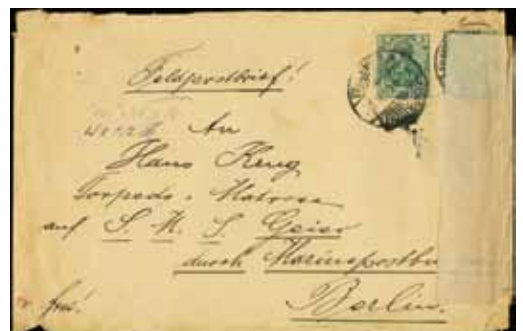 Feldpostbrief!
An
Hans Krug
Torpedo-Matrose
auf S. M. S. Geier
durch Marinepostbu
Berlin.
frei!